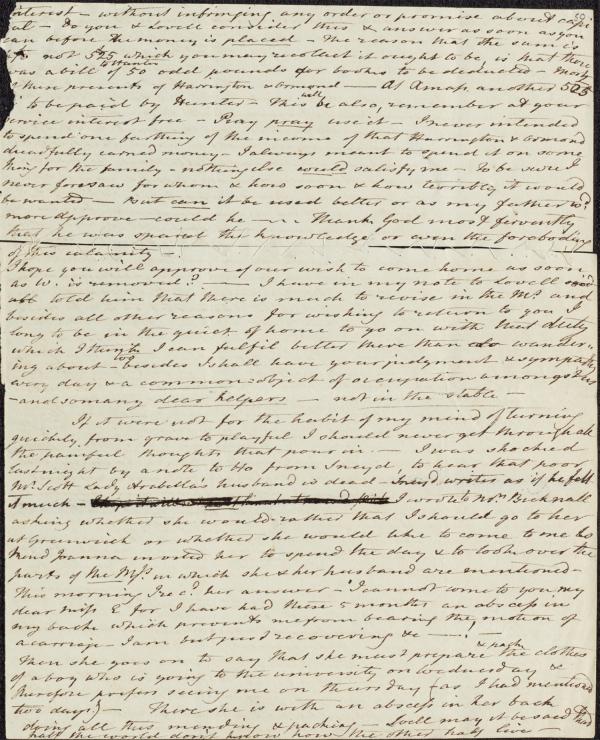 interest - without infringing any order or promise about capi
tal - Do you & Lovell consider this & answer as soon as you
can before the money is placed - The reason that the sum is
not 525 which you may recollect it ought to be, is that there
was a bill of 50 odd pounds for books to be deducted -
& then presents of Harrington & Ormond - At Amas another 525
to be paid by Hunter - This will be also, remember at your
service interest free - Pray pray use it - I never intended
to spend one farthing of the income of that Harrington & Ormond
dreadfully earned money - I always meant to spend it on some
thing for the family - nothing else would satisfy me - To be sure I
never foresaw for whom & how soon & how terribly it would
be wanted - But can it be used better or as my father wd.
more approve could he - Thank God most fervently
that he was spared the knowledge or even the foreboding
of this calamity -
I hope you will approve of our wish to come home as soon
as W. is removed? - I have in my note to Lovell
told him that there is much to revise in the Ms. and
besides all other reasons for wishing to return to you I
long to be in the quiet of home to go on with that duty
which I think I can fulfil better there than wander-
ing about - besides too I shall have your judgment & sympathy
every day & a common object of occupation amongst us
- and so many dear helpers - not in the stable -
If it were not for the habit of my mind of turning
quickly from grave to playful I should never get through all
the painful thoughts that pour in - I was shocked
last night by a note to Ho from Sneyd, to hear that poor
Mr. Scott Lady Arabella's husband is dead - Sneyd writes as if he felt
it much - I wrote to Mrs. Bicknall
asking whether she would rather that I should go to her
at Greenwich or whether she would like to come to me as
kind Joanna invited her to spend the day & to look over the
parts of the Mss. in which she & her husband are mentioned -
This morning I recd. her answer - "I cannot come to you my
dear Miss E for I have had these 5 months an abscess in
my back which prevents me from bearing the motion of
a carriage - I am but just recovering &c -"
Then she goes on to say that she must prepare & pack the clothes
of a boy who is going to the university on wednesday &
therefore prefers seeing me on thursday (as I had mentioned
two days.) - There she is with an abscess in her back
doing all this mending & packing - Well may it be said that
half the world don't know how the other half live -